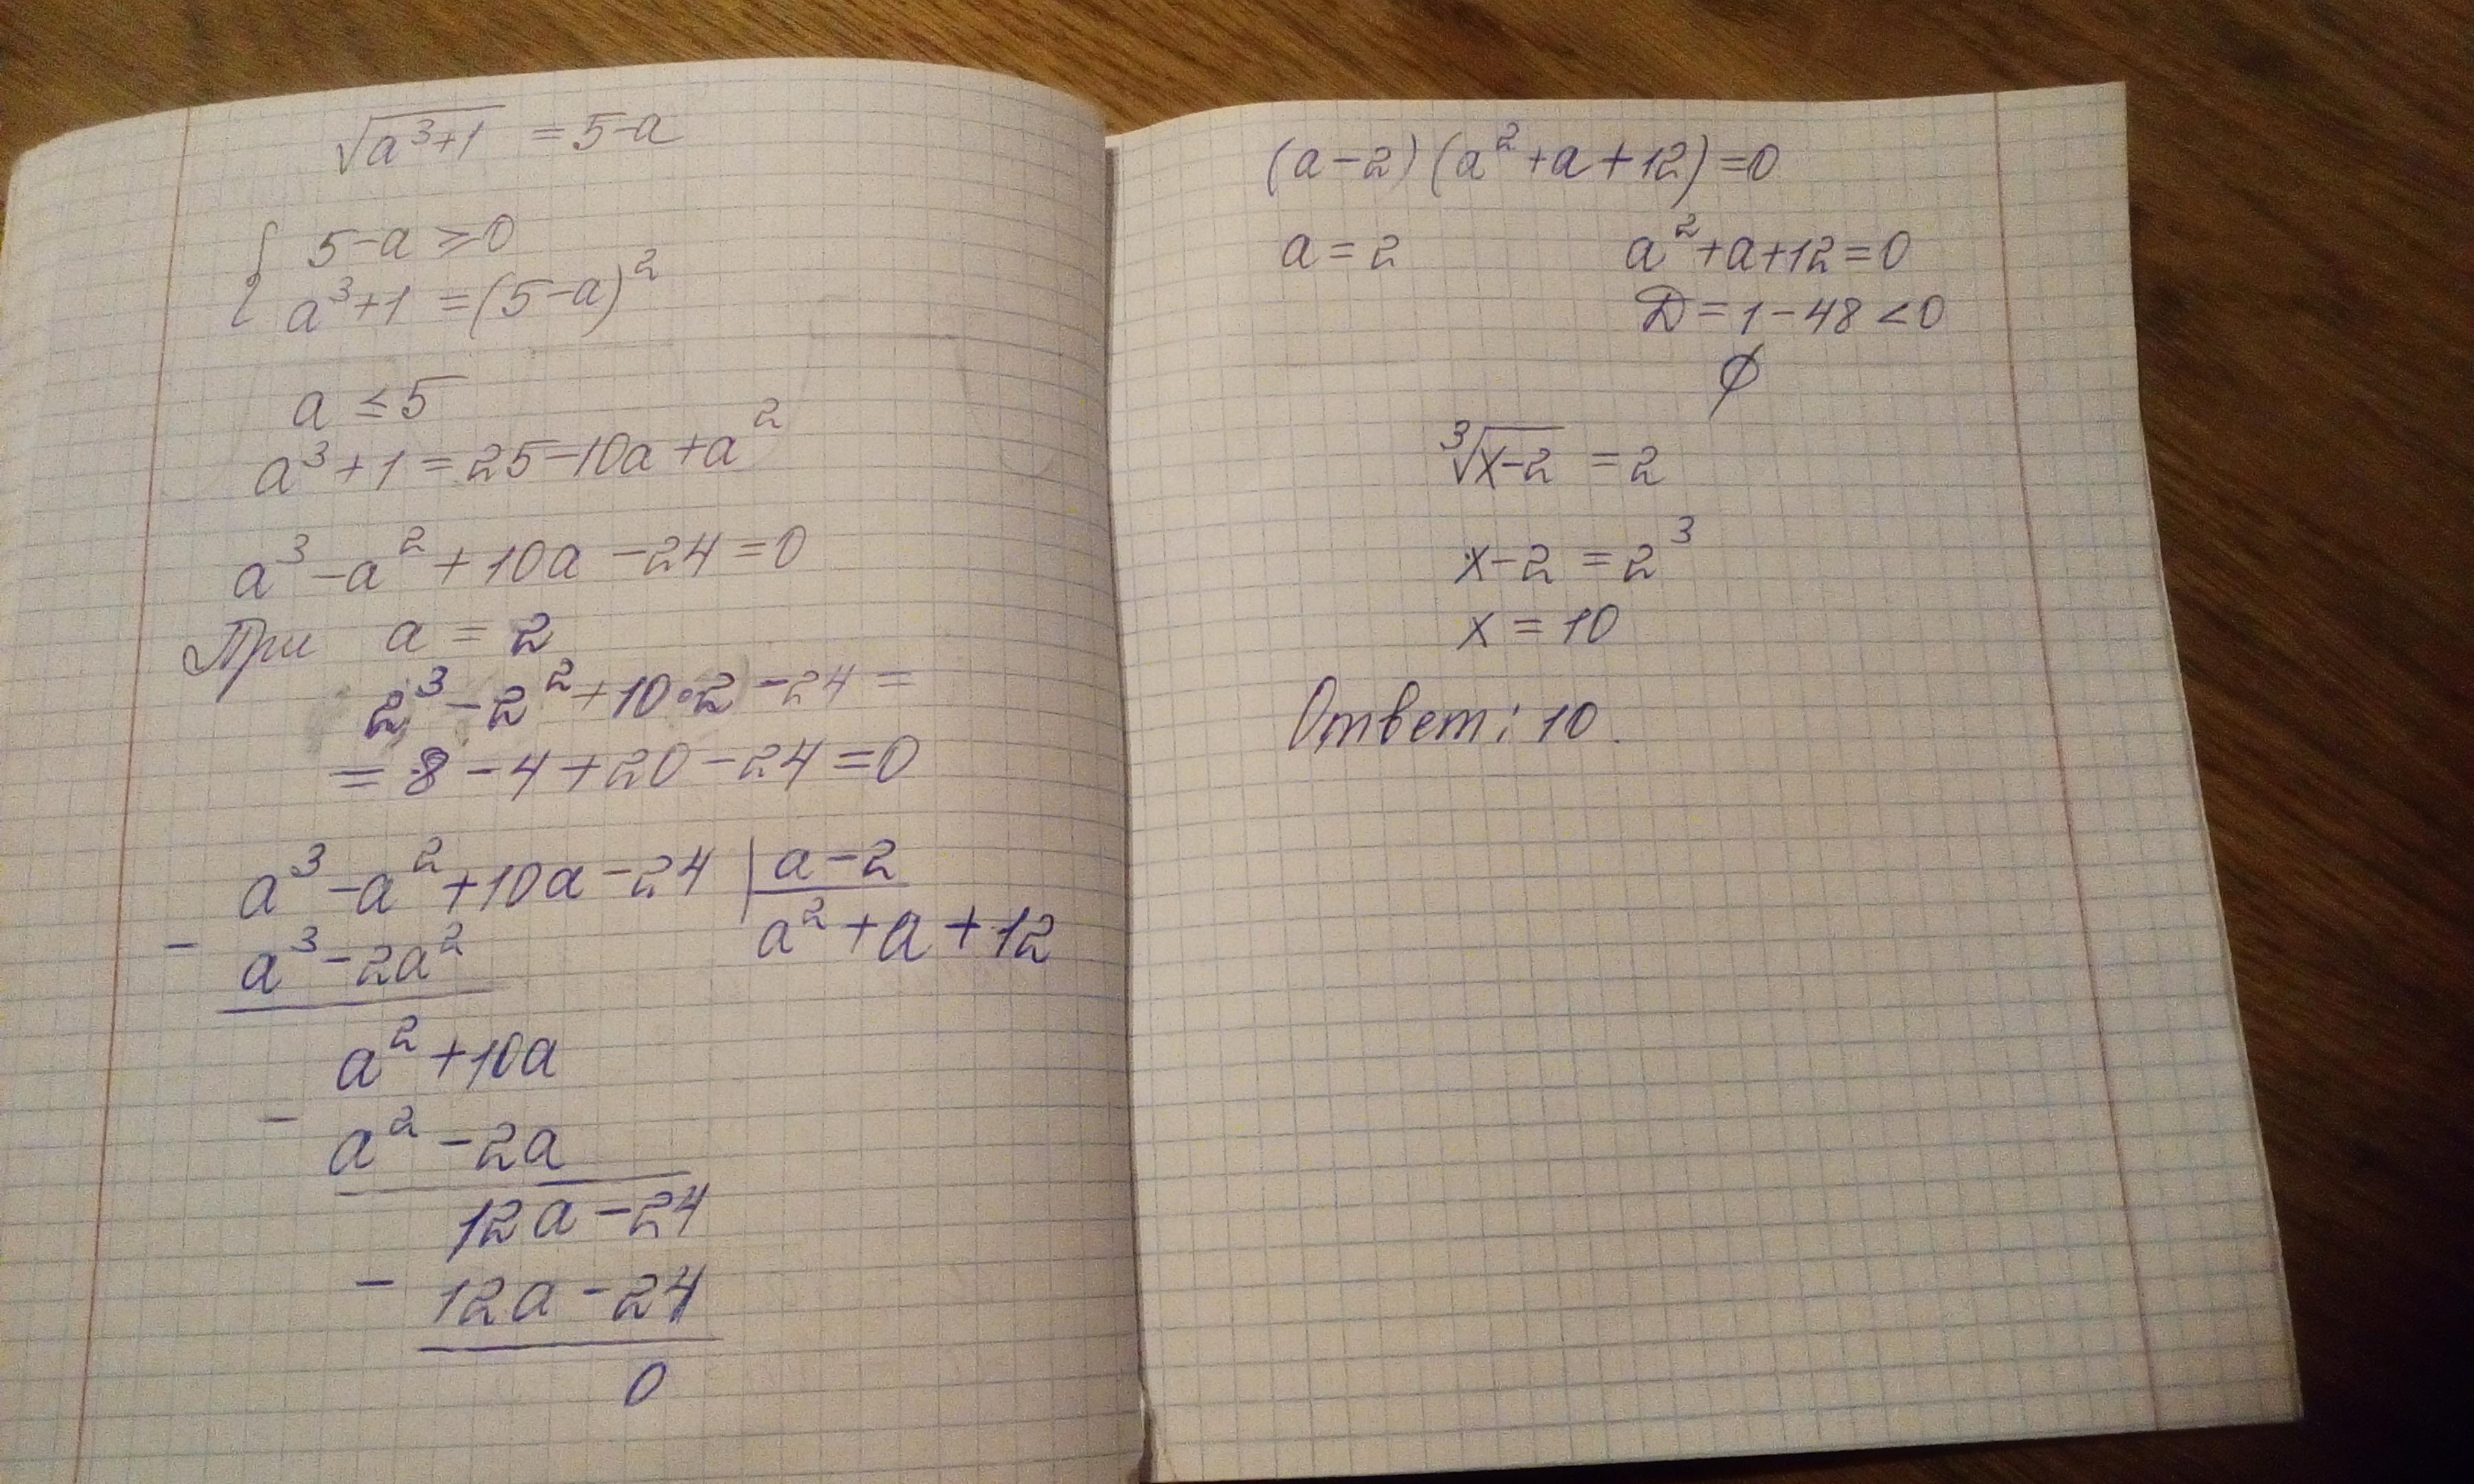 √(a³+1) = 5-a
{ 5-a ≥ 0
a³+1 = (5-a)²
a ≤ 5
a³+1 = 25-10a+a²
a³-a²+10a-24=0
При a = 2
2³-2²+10·2-24=
=8-4+20-24=0
a³-a²+10a-24 | a-2
- a³-2a² a²+a+12
a²+10a
- a²-2a
12a-24
- 12a-24
0
(a-2)(a²+a+12)=0
a=2 a²+a+12=0
D=1-48<0
∅
∛(x-2) = 2
x-2 = 2³
x = 10
Ответ: 10.